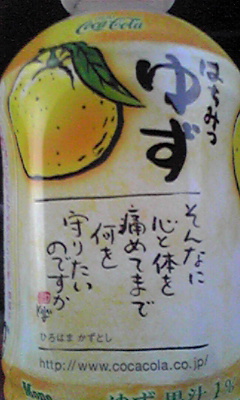 Coca-Cola
はちみつ
ゆず
そんなに
心と体を
痛めてまで
何を
守りたい
のですか
ひろはま かずとし
http://www.cocacola.co.jp/
ゆず 果汁 1%